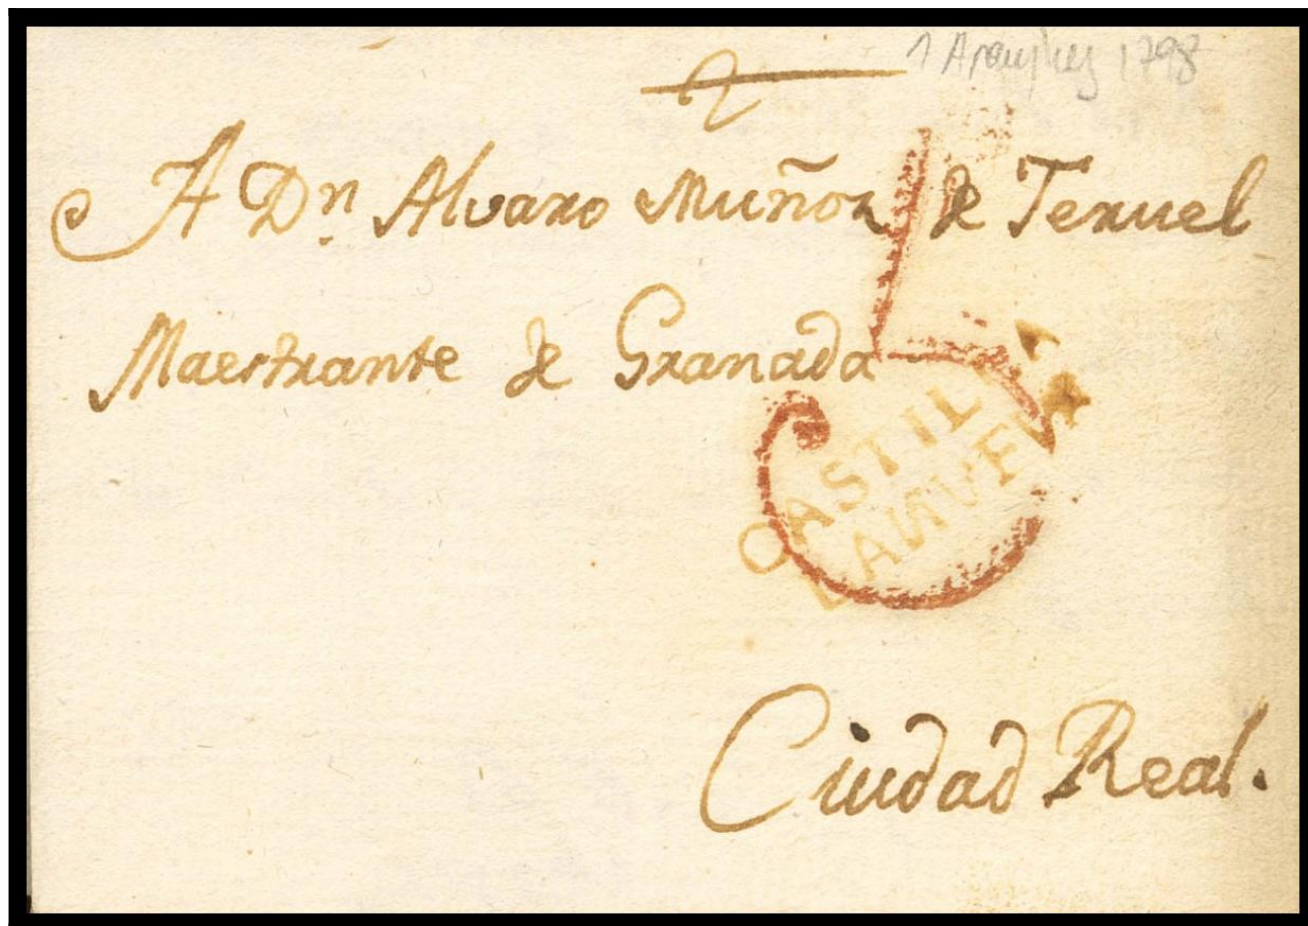 Aranjuez 1798
A Dn. Alvaro Muñoz de Teruel
Maestrante de Granada
5
CASTILLA
LA NUEVA
Ciudad Real.